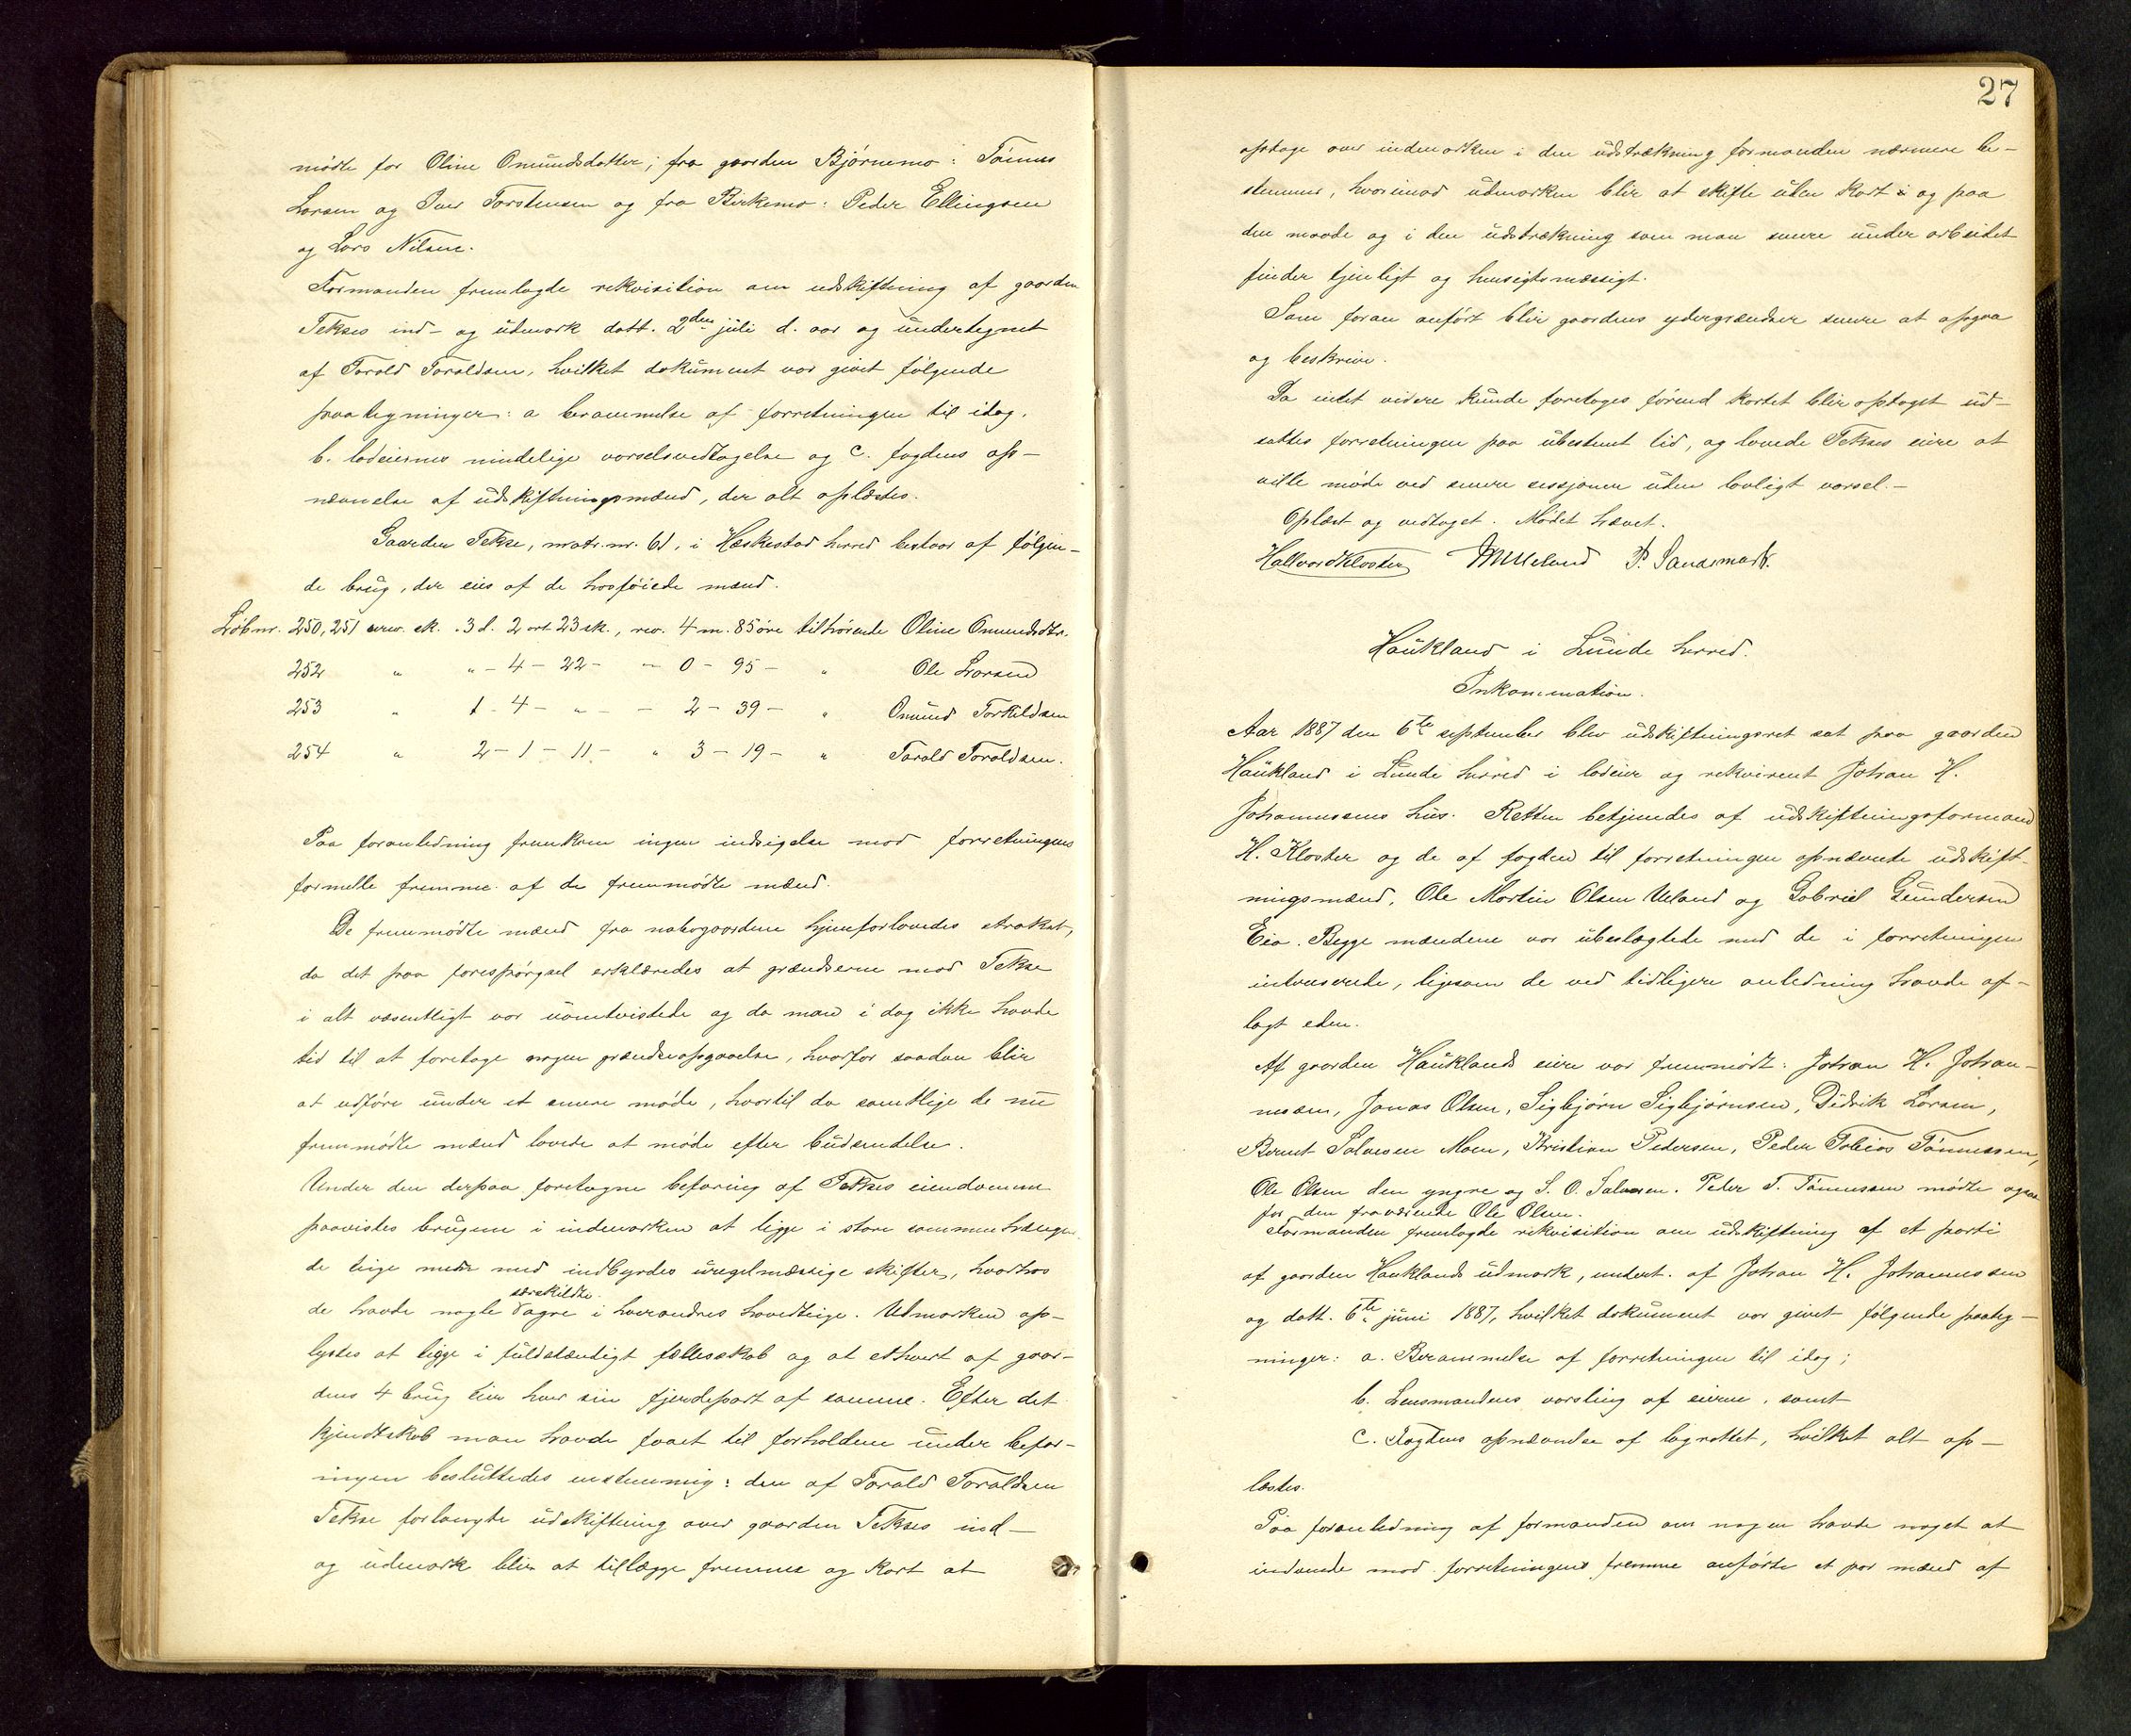 mødte for Oline Omundsdatter; fra gaarden Bjørnemo: Tønnes
Larsen og Iver Torstensen og fra Birkemo: Peder Ellingsen
og Lars Nilsen.
Formanden fremlagde rekvisition om udskiftning af gaarden
Tekses ind- og udmark datt. 2den juli d. aar og undertegnet
af Tarald Taraldsen, hvilket dokument var givet følgende
paategninger: a berammelse af forretningen til idag.
b. lodeiernes mindelige varselsvedtagelse og c. fogdens op-
nævnelse af udskiftningsmænd, der alt oplæstes.
Gaarden Tekse, matr. nr. 61, i Heskestad herred bestaar af følgen-
de brug, der eies af de hosføiede mænd.
Løbnr. 250, 251 urev. sk. .3 d. 2 ort 23 sk., rev. 4 m. 85 øre tilhørende Oline Omundsdtr.
252 " " - 4 - 22 - - 0 - 95 - " Ole Larsen
253 " 1 - 4 - " - - 2 - 39 - " Omund Torkildsen
254 " 2 - 1 - 11 - " 3 - 19 - " Tarald Taraldsen.
Paa foranledning fremkom ingen indsigelse mod forretningens
formelle fremme af de fremmødte mænd.
De fremmødte mænd fra nabogaardene hjemforlovedes strakst,
da det paa forespørgsel erklæredes at grændserne mod Tekse
i alt væsentligt var uomtvistede og da man i dag ikke havde
tid til at foretage nogen grændseopgaaelse, hvorfor saadan blir
at udføre under et senere møde, hvortil da samtlige de nu
fremmødte mænd lovede at møde efter budsendelse.
Under den derpaa foretagne befaring af Tekses eiendomme
paavistes brugene i indmarken at ligge i store sammenhængen-
de teige med indbyrdes uregelmæssige skifter, hvorhos
særskildte
de havde nogle agre i hverandres hovedteige. Udmarken op-
lystes at ligge i fuldstændigt fællesskab og at ethvert af gaar-
dens 4 brug eier hver sin fjerdepart af samme. Efter det
kjendtskab man havde faaet til forholdene under befar-
ingen besluttedes enstemmig: den af Tarald Taraldsen
Tekse forlangte udskiftning over gaarden Tekses ind-
og udmark blir at tillægge fremme og kart at
27
optage over indmarken i den udstrækning formanden nærmere be-
stemmer, hvorimod udmarken blir at skifte uden kart og paa
den maade og i den udstrækning som man senere under arbeidet
finder tjenligt og hensigtsmæssigt.
Som foran anført blir gaardens ydergrændser senere at opgaa
og beskrive.
Da intet videre kunde foretages førend kartet blir optaget ud-
sattes forretningen paa ubestemt tid, og lovede Tekses eiere at
ville møde ved senere sessjoner uden lovligt varsel.-
Oplæst og vedtaget. Mødet hævet.
Hallvard Kloster Ueland P. Sandsmark.
Haukland i Lunde herred.
Inkamination.
Aar 1887 den 6te september blev udskiftningsret sat paa gaarden
Haukland i Lunde herred i lodeier og rekvirent Johan H.
Johannessens hus. Retten betjendes af udskiftningsformand
H. Kloster og de af fogden til forretningen opnævnte udskift-
ningsmænd, Ole Martin Olsen Ueland og Gabriel Gundersen
Eia. Begge mændene var ubeslægtede med de i forretningen
interesserede, ligesom de ved tidligere anledning havde af-
lagt eden.
Af gaarden Hauklands eiere var fremmødt: Johan H. Johan-
nesen, Jonas Olsen, Sigbjørn Sigbjørnsen, Didrik Larsen,
Bernt Salvesen Moen, Kristian Pedersen, Peder Tobias Tønnessen,
Ole Olsen den yngre og S. O. Salvesen. Peder T. Tønnessen mødte ogsaa
for den fraværende Ole Olsen.
Formanden fremlagde rekvisition om udskiftning af et parti
af gaarden Hauklands udmark, undert. af Johan H. Johannessen
og datt. 6te juni 1887, hvilket dokument var givet følgende paateg-
ninger: a. Berammelse af forretningen til idag;
b. Lensmandens varsling af eierne, samt
c. Fogdens opnævnelse af lagrettet, hvilket alt op-
læstes.
Paa foranledning af formanden om nogen havde noget at
indvende mod forretningens fremme anførte et par mænd af